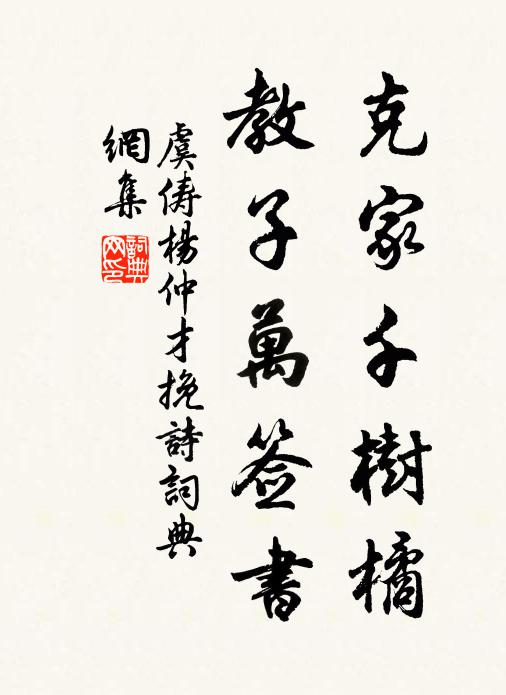 克家千樹橘
教子萬签書
虞儔楊仲才挽詩詞典
網集
詞典
网印